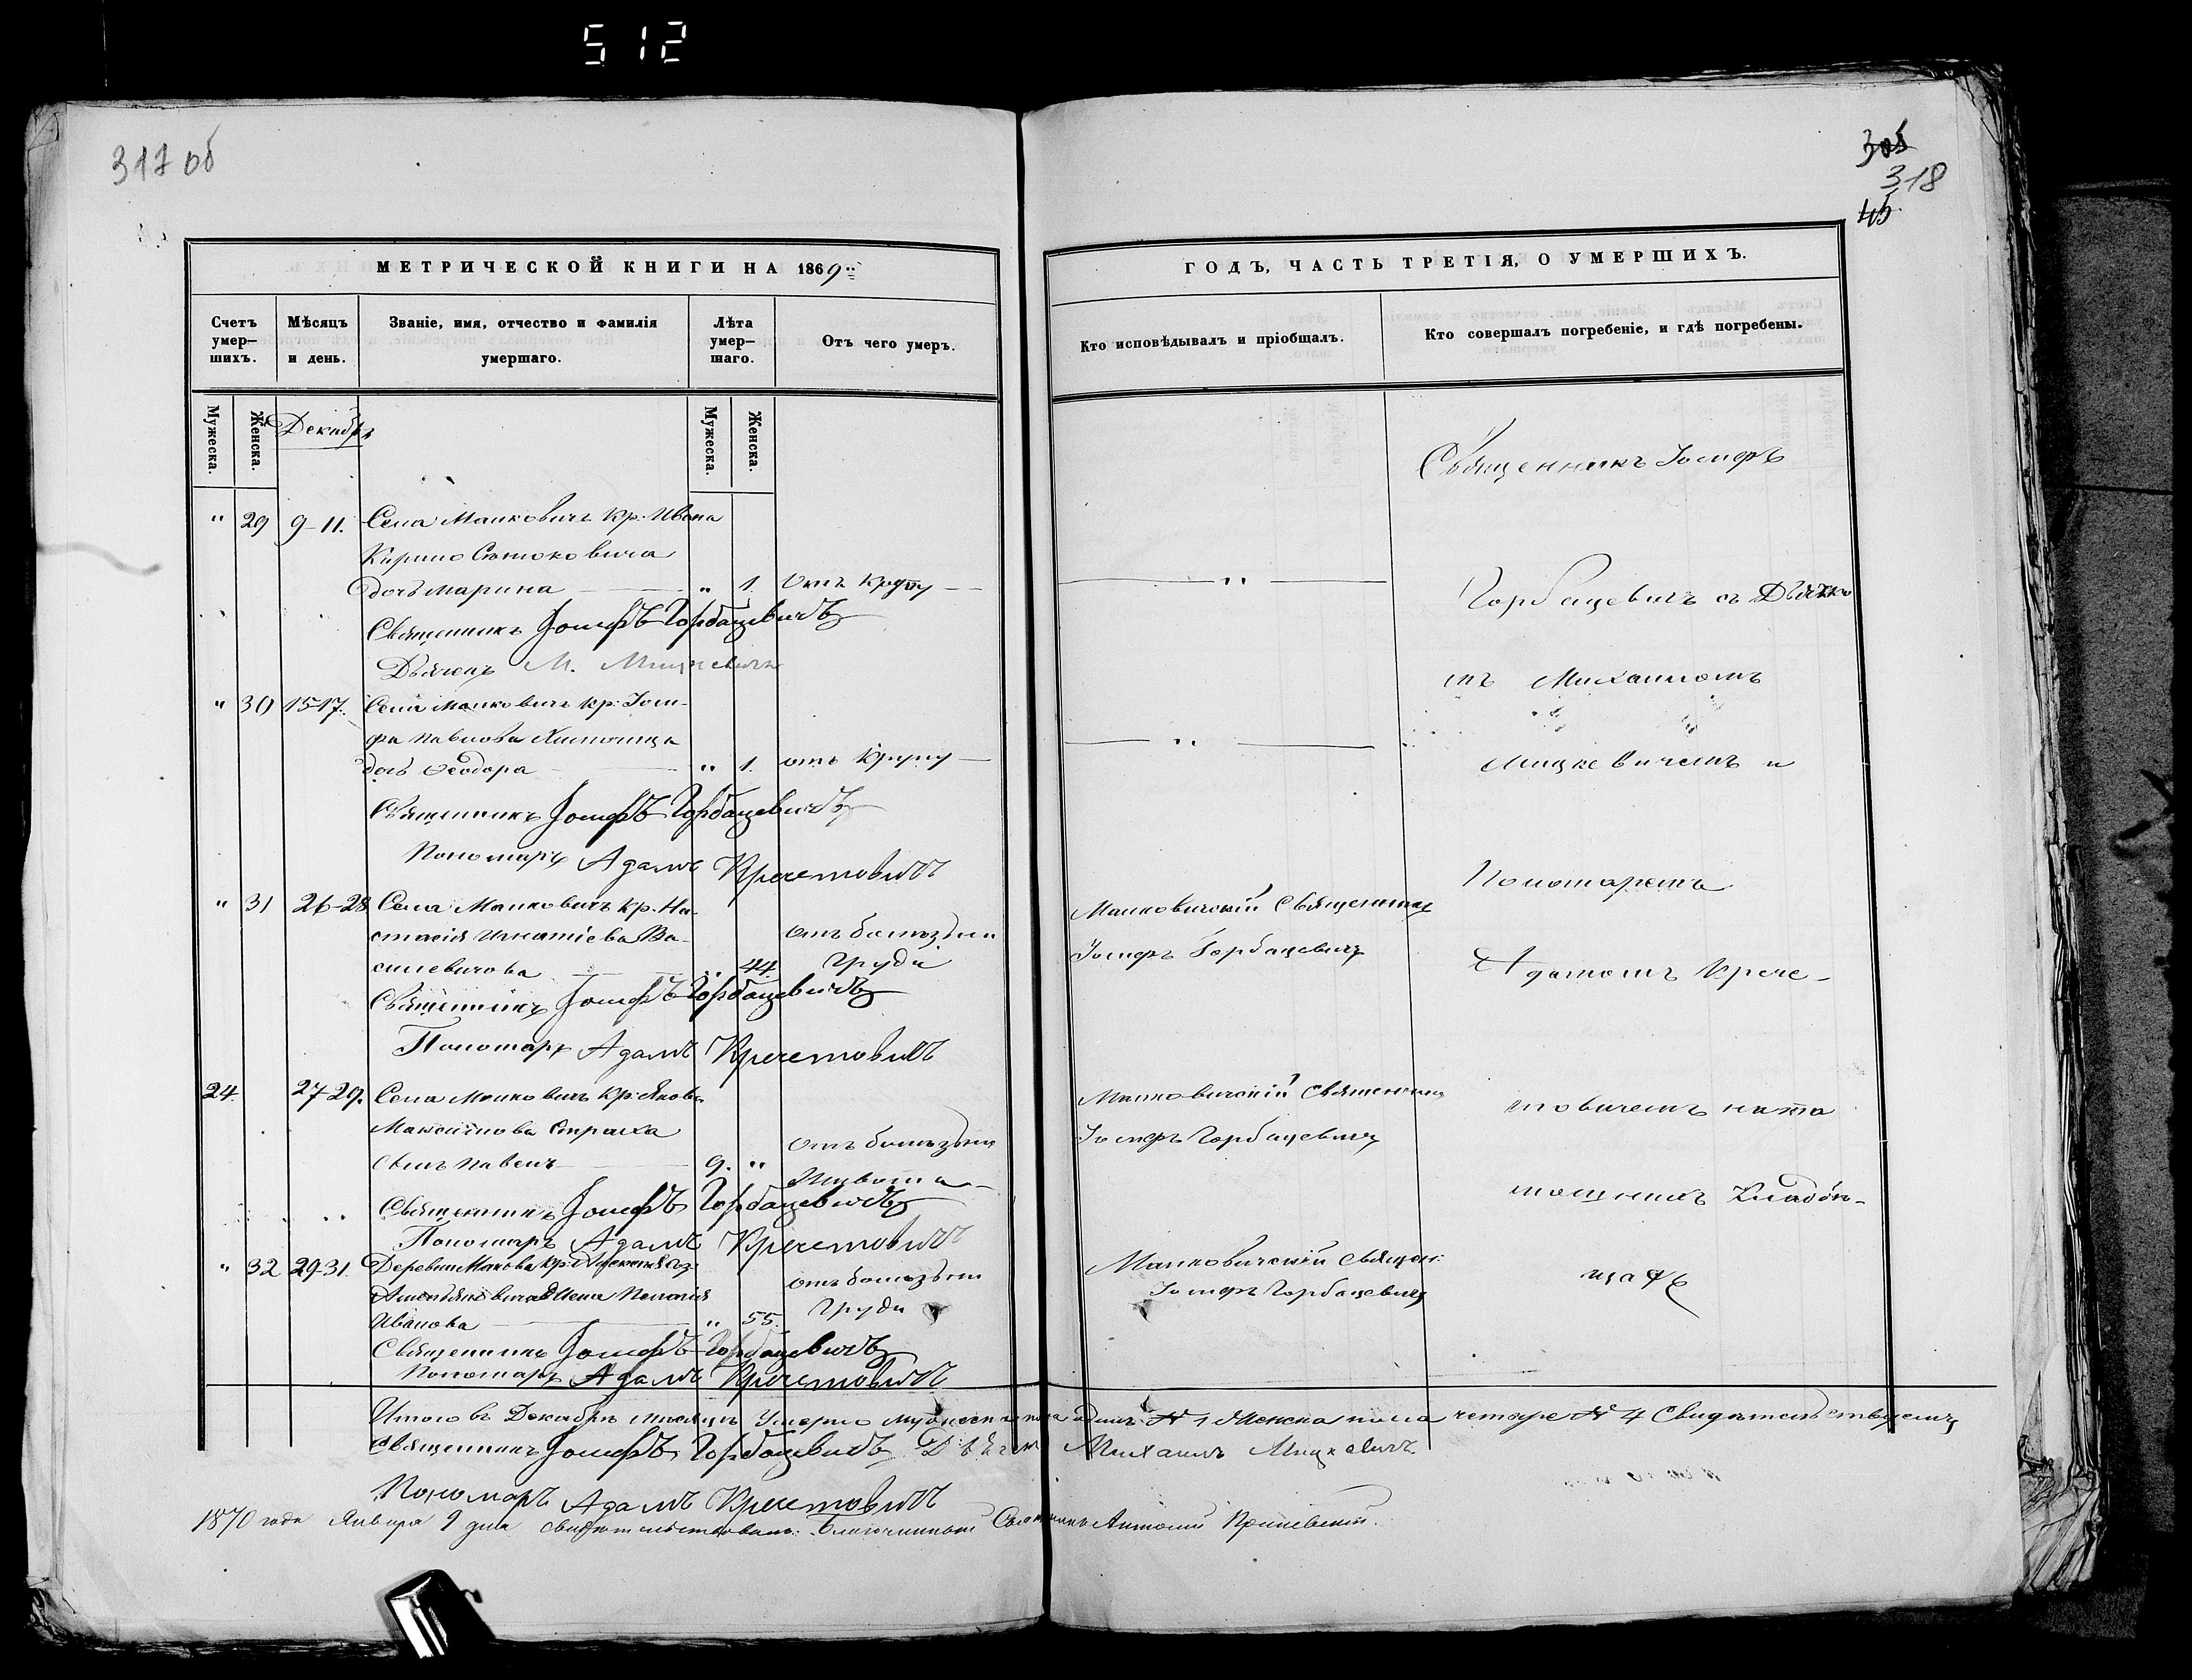 512
317 об
305
318
45
МЕТРИЧЕСКОЙ КНИГИ НА 1869
ГОДЪ, ЧАСТЬ ТРЕТІЯ, О УМЕРШИХЪ.
Счетъ умер-шихъ.
Мѣсяцъ и день.
Званіе, имя, отчество и фамилія умершаго.
Лѣта умер-шаго.
Отъ чего умеръ.
Кто исповѣдывалъ и пріобщалъ.
Кто совершалъ погребеніе, и гдѣ погребены.
Мужеска.
Женска.
Декабрь
Мужеска.
Женска.
Священникъ Іосифъ
" 29 9-11. Села Манковичъ кр: Ивана
дочь Марина " 1. Отъ крупу
Священникъ Іосифъ Горбацевичъ
Дьячекъ М. Мицкевичъ
Горбацевичъ съ Дьячко
мъ Михаиломъ
" 30 15-17. Села Манковичъ кр: Іоси-
фа Павлова
дочь Ѳеодора " 1. отъ крупу
Мицкевичемъ и
Священникъ Іосифъ Горбацевичъ
Пономарь Адамъ Кречетовичъ
Пономаремъ
" 31 26-28 Села Манковичъ кр. На-
стасія Игнатіева Ва-
силевичова " 44. Отъ болѣзни груди
Манковичскій Священникъ
Іосифъ Горбацевичъ
Адамомъ Крече-
Священникъ Іосифъ Горбацевичъ
Пономарь Адамъ Кречетовичъ
24. 27-29. Села Манковичъ кр: Якова
Максимова Страха
сынъ Павелъ 9. " Отъ болѣзни живота
Манковичскій Священникъ
Іосифъ Горбацевичъ
товичемъ на та
мошнемъ кладби-
Священникъ Іосифъ Горбацевичъ
Пономарь Адамъ Кречетовичъ
" 32 29-31. Деревни
жена Пелагія
Иванова " 55. отъ болѣзни груди
Манковичскій Священ:
Іосифъ Горбацевичъ
щахъ
Священникъ Іосифъ Горбацевичъ
Пономарь Адамъ Кречетовичъ
Итого въ Декабрѣ мѣсяцѣ умерло мужеска пола одинъ № 1 Женска пола четыре № 4 Свидѣтельствуемъ
Священникъ Іосифъ Горбацевичъ Дьячекъ Михаилъ Мицкевичъ.
Пономарь Адамъ Кречетовичъ
1870 года Января 9 дня свидѣтельствовалъ: Благочинный Священникъ Антоній